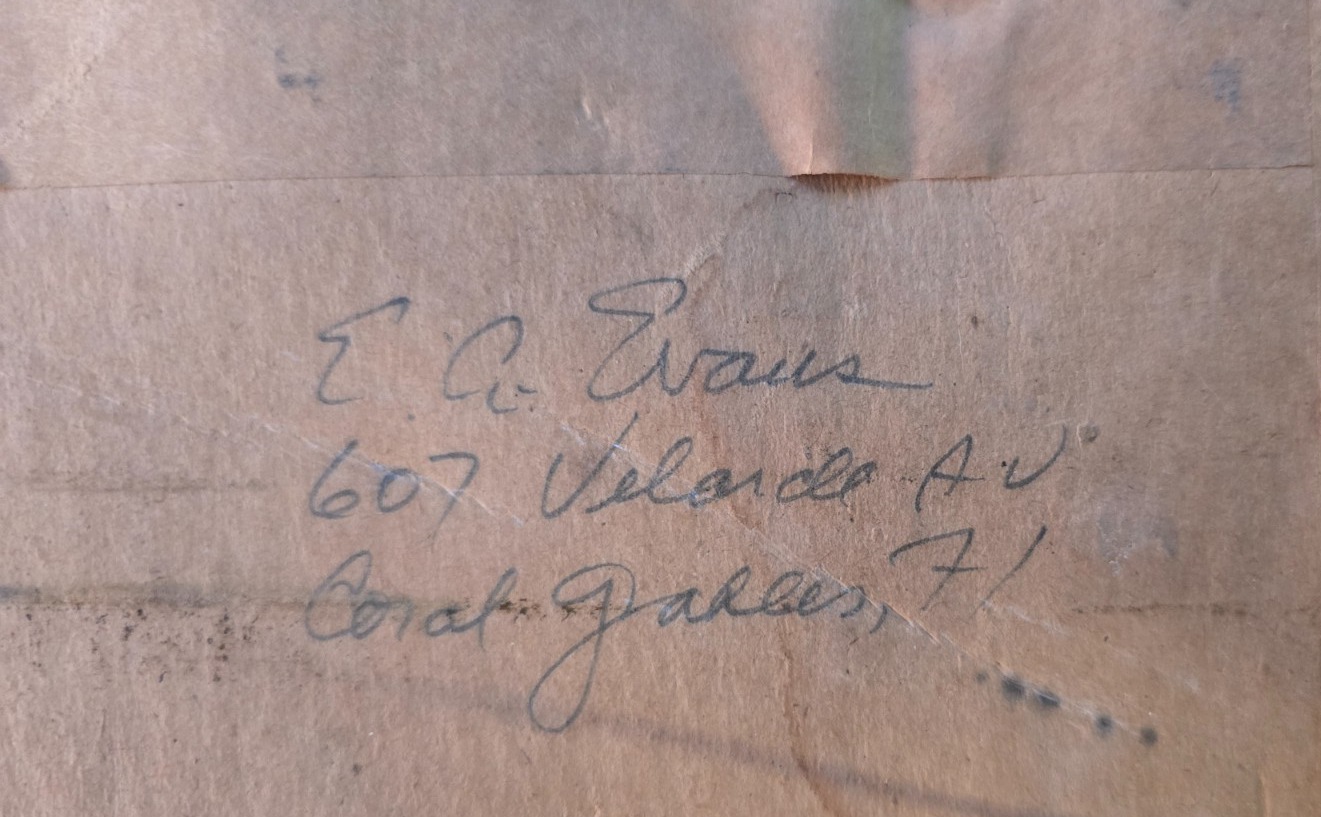 E. G. Evans
607 Velarde Av
Coral Gables, Fl